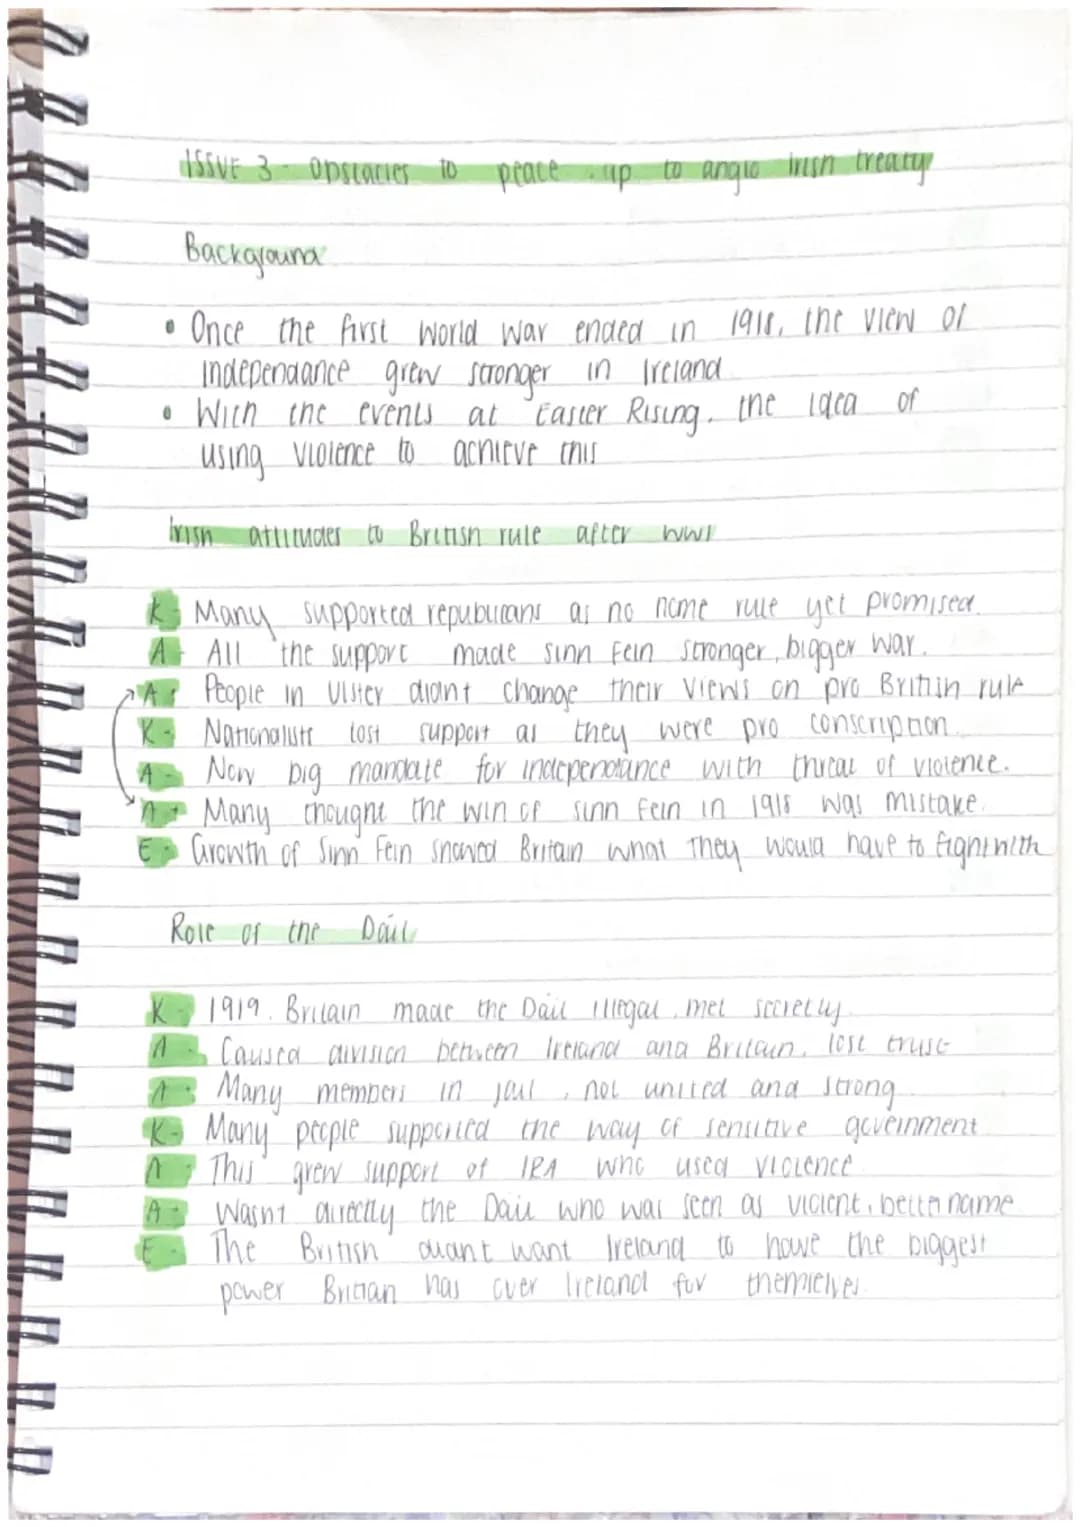 ISSUE 3 - Obstacles to peace . up to anglo irish treaty
Background
• Once the first World War ended in 1918, the view of
independance grew stronger in Ireland
• With the events at Easter Rising, the idea of
using violence to achieve this
Irish attitudes to British rule after WW1
K - Many supported republicans as no home rule yet promised.
A - All the support made sinn fein stronger, bigger war.
A + People in Ulster didnt change their views on pro British rule
K - Nationalists lost support as they were pro conscription.
A - Now big mandate for independance with threat of violence.
A + Many thought the win of sinn Fein in 1918 was mistake.
E - Growth of Sinn Fein showed Britain what they would have to fight with
Role of the Dáil
K - 1919. Britain made the Dáil illegal, met secretly.
A - Caused division between Ireland and Britain, lost trust
A + Many members in jail, not united and strong
K - Many people supported the way of sensitive government
A - This grew support of IRA who used violence.
A + Wasnt directly the Dáil who was seen as violent, better name
E - The British didnt want Ireland to have the biggest
power Britian has over Ireland for themselves.